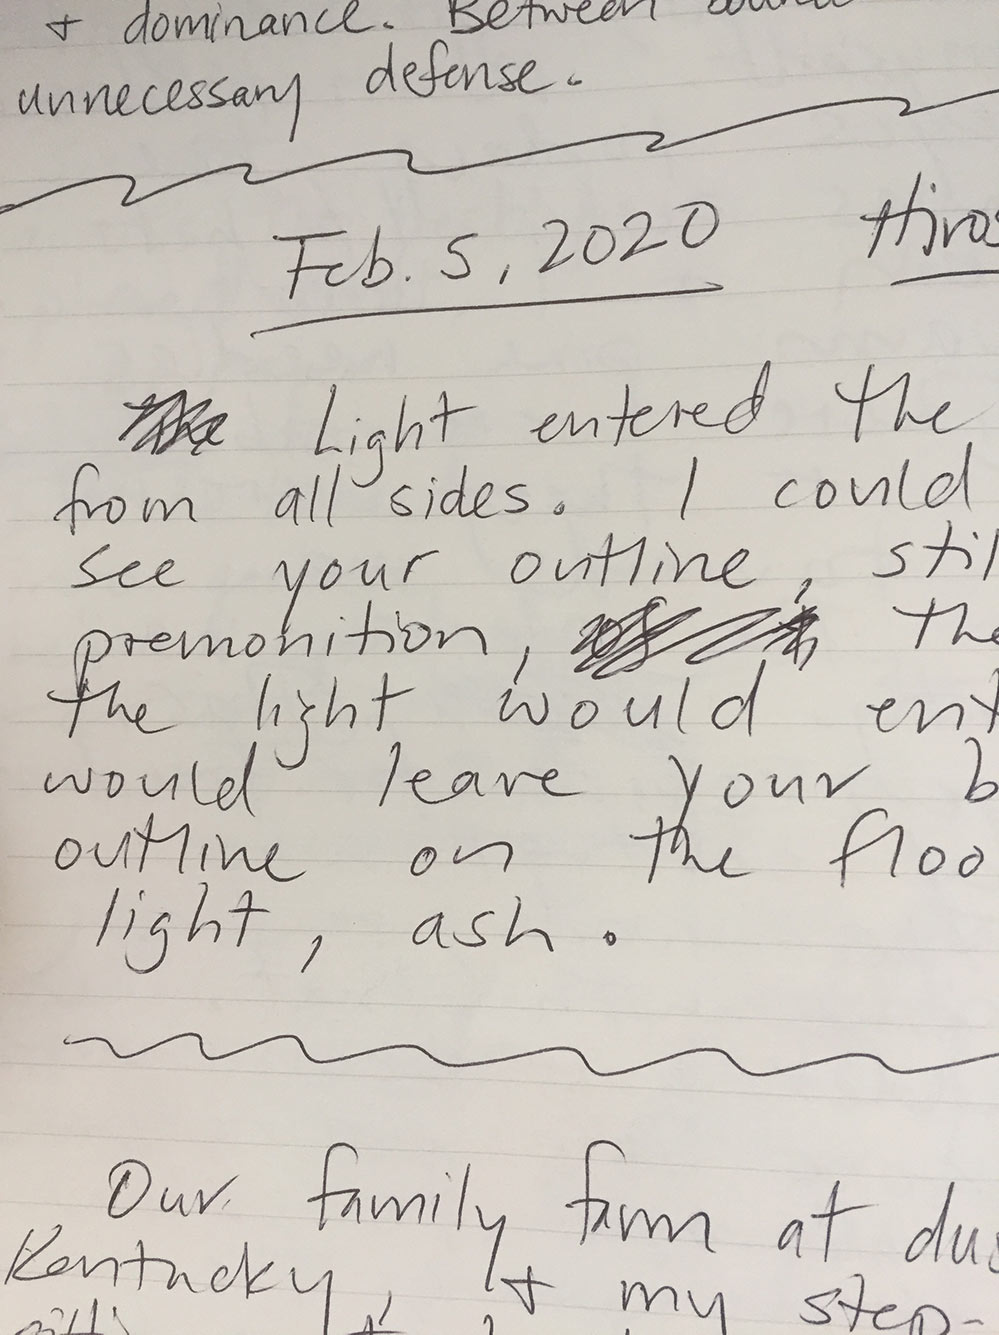 + dominance. Between
unnecessary defense.
Feb. 5, 2020 Hiros
Light entered the
from all sides. I could
see your outline, stil
premonition, the
the light would ent
would leave your b
outline on the floo
light, ash.
Our family farm at dus
Kentucky, I + my step-